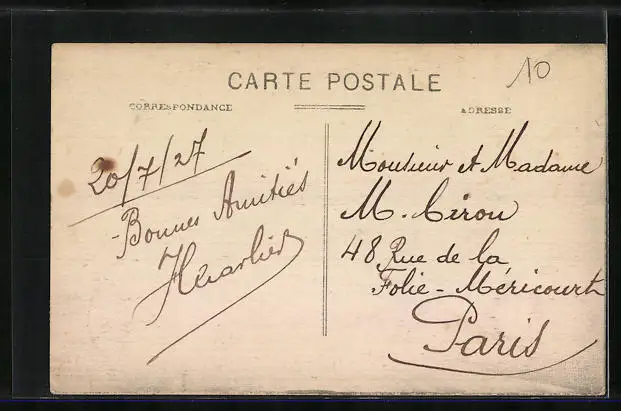 CARTE POSTALE
10
CORRESPONDANCE
ADRESSE
20/7/27
Bonnes Amitiés
Monsieur et Madame
M.
48 Rue de la
Folie-Méricourt
Paris